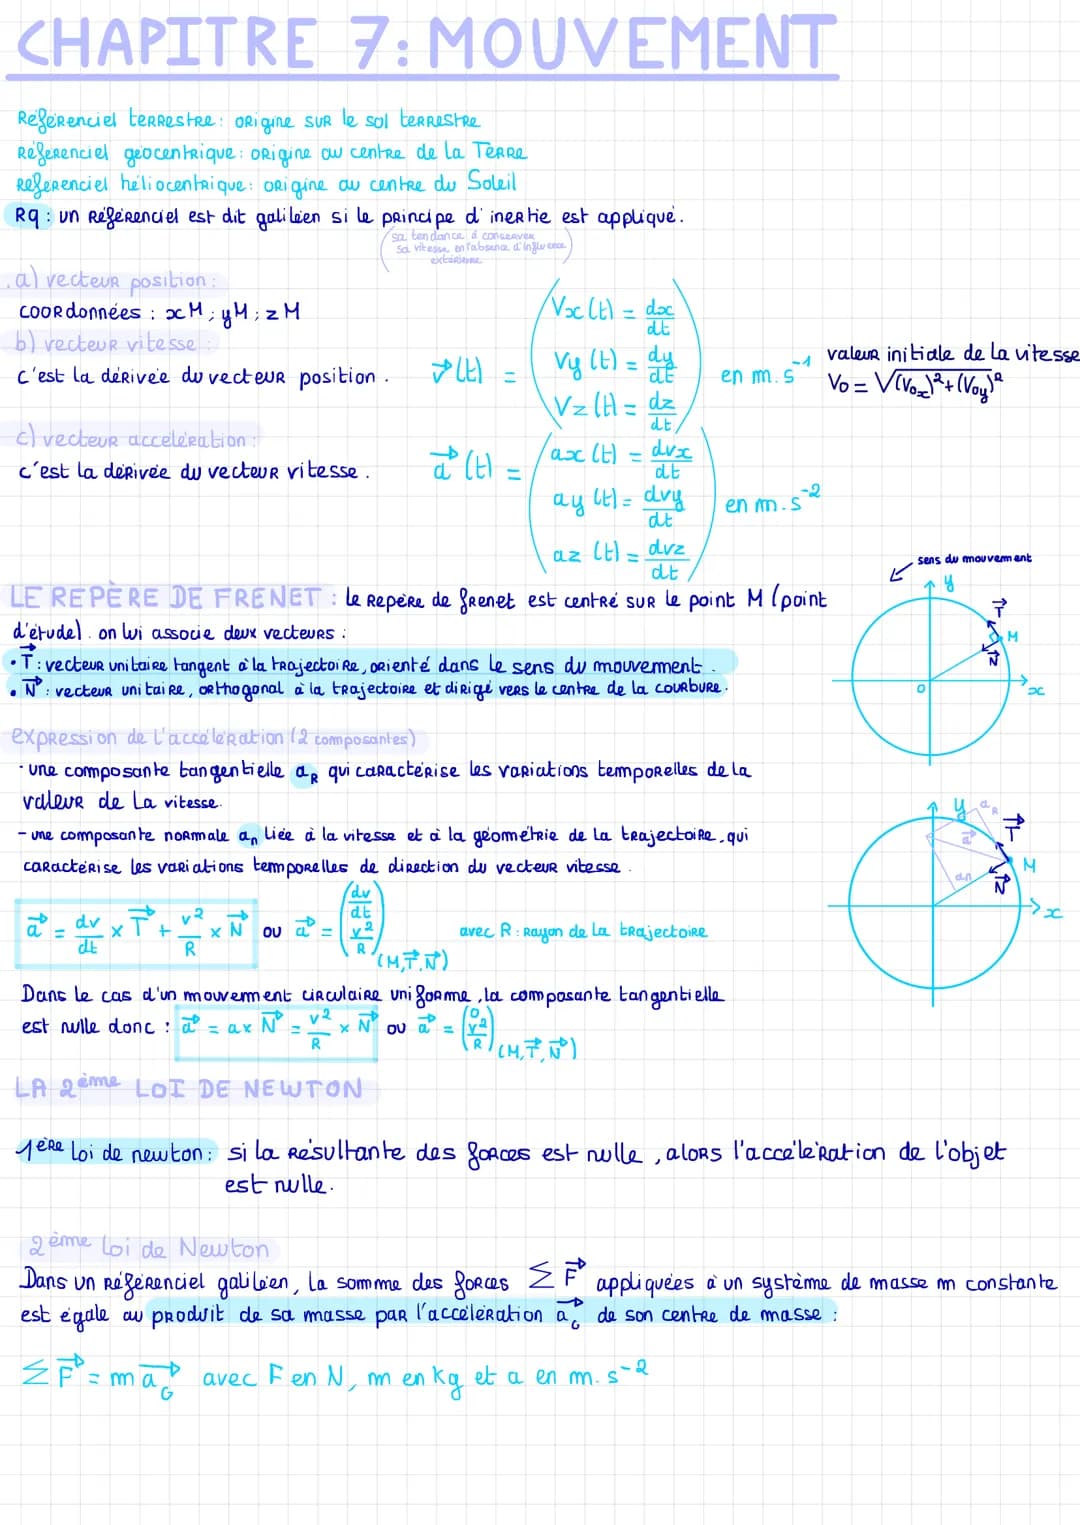 CHAPITRE 7: MOUVEMENT
Référenciel terrestre: origine sur le sol terrestre
Référenciel géocentrique: origine au centre de la Terre
Référenciel héliocentrique: origine au centre du Soleil
Rq : un référenciel est dit galiléen si le principe d'inertie est appliqué.
(sa tendance à conserver
sa vitesse en l'absence d'influence
extérieure)
a) vecteur position :
coordonnées : xM ; yM ; zM
b) vecteur vitesse :
c'est la dérivée du vecteur position .
v⃗(t) = ( Vx(t) = dx/dt
Vy(t) = dy/dt
Vz(t) = dz/dt ) en m.s⁻¹
valeur initiale de la vitesse
V₀ = √(V₀x)² + (V₀y)²
c) vecteur accélération :
c'est la dérivée du vecteur vitesse .
a⃗(t) = ( ax(t) = dvx/dt
ay(t) = dvy/dt
az(t) = dvz/dt ) en m.s⁻²
sens du mouvement
y
T⃗
M
N⃗
O
x
LE REPÈRE DE FRENET : le repère de frenet est centré sur le point M (point
d'étude). on lui associe deux vecteurs :
• T⃗ : vecteur unitaire tangent à la trajectoire, orienté dans le sens du mouvement .
• N⃗ : vecteur unitaire, orthogonal à la trajectoire et dirigé vers le centre de la courbure.
expression de l'accélération (2 composantes)
- une composante tangentielle aR qui caractérise les variations temporelles de la
valeur de la vitesse.
- une composante normale an liée à la vitesse et à la géométrie de la trajectoire, qui
caractérise les variations temporelles de direction du vecteur vitesse .
y
aR
T⃗
a⃗
M
an
N⃗
x
a⃗ = dv/dt × T⃗ + v²/R × N⃗ ou a⃗ = (dv/dt v²/R) (M,T⃗,N⃗) avec R : Rayon de la trajectoire
Dans le cas d'un mouvement circulaire uniforme , la composante tangentielle
est nulle donc : a⃗ = a × N⃗ = v²/R × N⃗ ou a⃗ = (0 v²/R) (M,T⃗,N⃗)
LA 2ème LOI DE NEWTON
1ère loi de newton: si la résultante des forces est nulle , alors l'accélération de l'objet
est nulle.
2ème loi de Newton
Dans un référenciel galiléen, la somme des forces Σ F⃗ appliquées à un système de masse m constante
est égale au produit de sa masse par l'accélération a⃗G de son centre de masse :
Σ F⃗ = m a⃗G avec F en N, m en kg et a en m.s⁻²